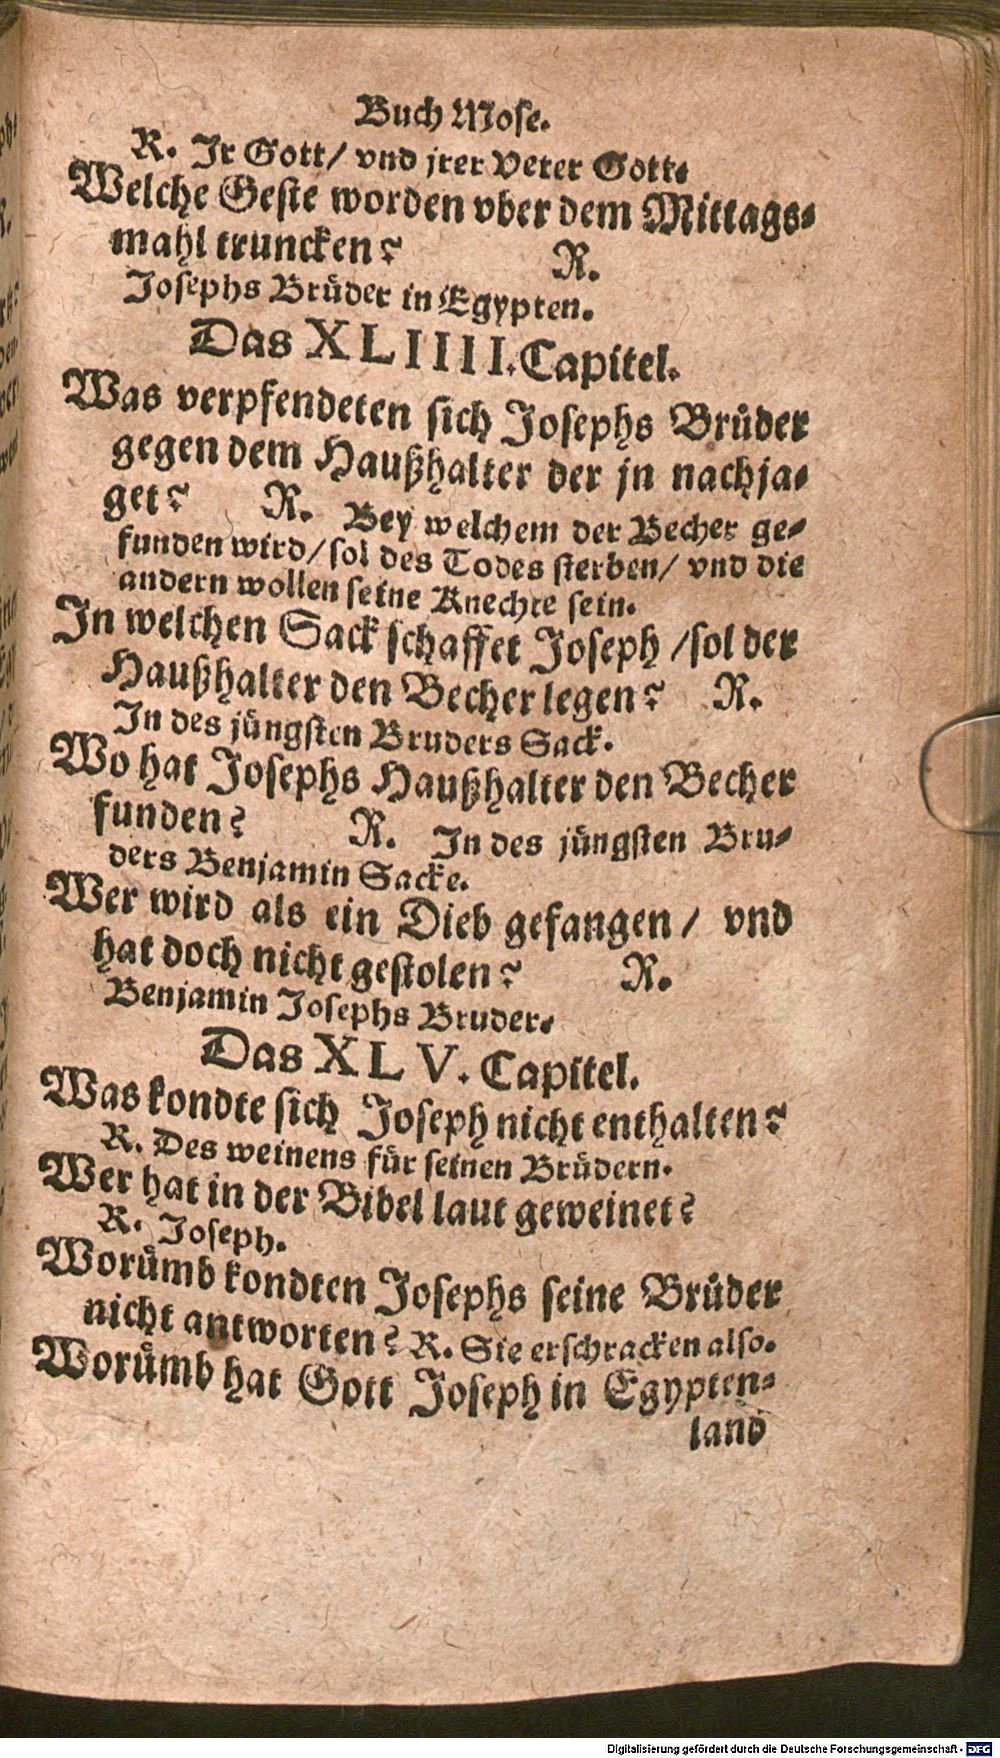 Buch Mose.
R. Jr Gott/ vnd jrer Veter Gott.
Welche Geste worden vber dem Mittags-
mahl truncken? R.
Josephs Brüder in Egypten.
Das XLIIII. Capitel.
Was verpfendeten sich Josephs Brüder
gegen dem Haußhalter der jn nachja-
get? R. Bey welchem der Becher ge-
funden wird/ sol des Todes sterben/ vnd die
andern wollen seine Knechte sein.
In welchen Sack schaffet Joseph / sol der
Haußhalter den Becher legen? R.
In des jüngsten Bruders Sack.
Wo hat Josephs Haußhalter den Becher
funden? R. In des jüngsten Bru-
ders Benjamin Sacke.
Wer wird als ein Dieb gefangen / vnd
hat doch nicht gestolen? R.
Benjamin Josephs Bruder.
Das XLV. Capitel.
Was kondte sich Joseph nicht enthalten?
R. Des weinens für seinen Brüdern.
Wer hat in der Bibel laut geweinet?
R. Joseph.
Worümb kondten Josephs seine Brüder
nicht antworten? R. Sie erschracken also.
Worümb hat Gott Joseph in Egypten-
land
Digitalisierung gefördert durch die Deutsche Forschungsgemeinschaft - DFG